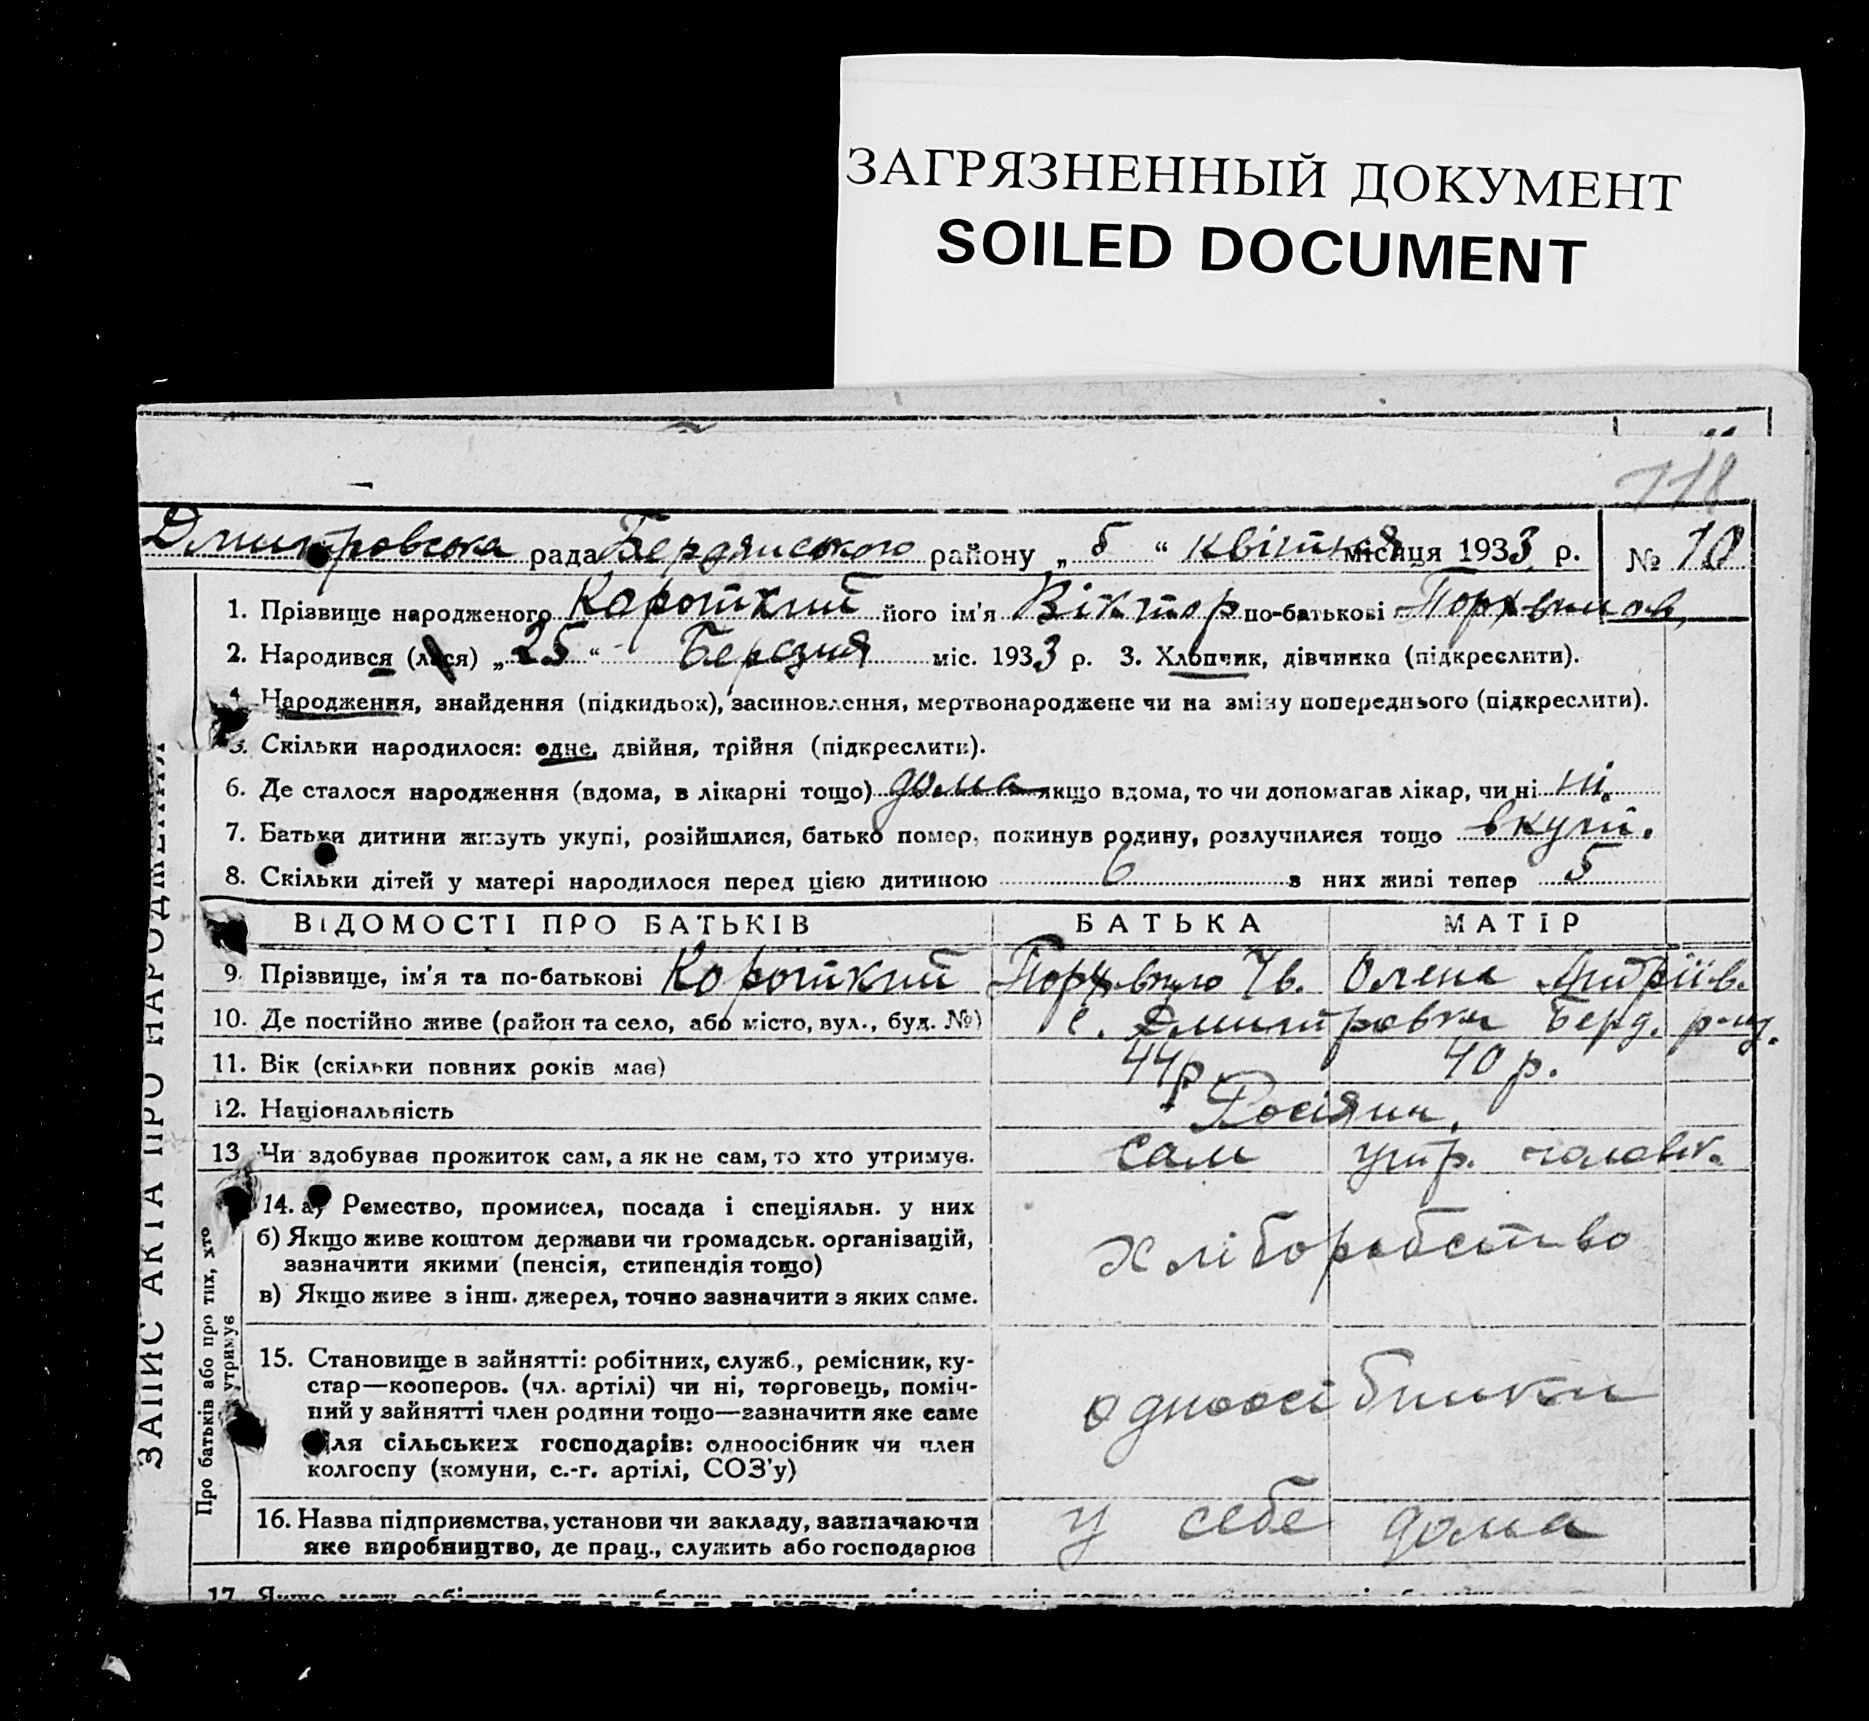 ЗАГРЯЗНЕННЫЙ ДОКУМЕНТ
SOILED DOCUMENT
118
Дмитровська рада Бердянського району „ 5 “ квітня місяця 1933 р. № 10
1. Прізвище народженого Короткий його ім'я Віктор по-батькові
2. Народився (лася) „ 25 “ Березня міс. 1933 р. 3. Хлопчик, дівчинка (підкреслити).
4. Народження, знайдення (підкидьок), засиновлення, мертвонароджене чи на зміну попереднього (підкреслити).
5. Скільки народилося: одне, двійня, трійня (підкреслити).
6. Де сталося народження (вдома, в лікарні тощо) дома якщо вдома, то чи допомагав лікар, чи ні ні.
7. Батьки дитини живуть укупі, розійшлися, батько помер, покинув родину, розлучилися тощо вкупі.
8. Скільки дітей у матері народилося перед цією дитиною 6 з них живі тепер 5
ВІДОМОСТІ ПРО БАТЬКІВ БАТЬКА МАТІР
9. Прізвище, ім'я та по-батькові Короткий Ів. Олена Дмитріїв.
10. Де постійно живе (район та село, або місто, вул., буд. №) с. Дмитровка Берд. р-ну.
11. Вік (скільки повних років має) 44 р. 40 р.
12. Національність Росіяни.
13. Чи здобуває прожиток сам, а як не сам, то хто утримує. сам утр. чоловік.
14. а) Ремество, промисел, посада і спеціяльн. у них
б) Якщо живе коштом держави чи громадськ. організацій,
зазначити якими (пенсія, стипендія тощо)
хліборобство
в) Якщо живе з інш. джерел, точно зазначити з яких саме.
15. Становище в зайнятті: робітник, служб., ремісник, ку-
стар—кооперов. (чл. артілі) чи ні, торговець, поміч-
ний у зайнятті член родини тощо—зазначити яке саме
одноосібники
Для сільських господарів: одноосібник чи член
колгоспу (комуни, с.-г. артілі, СОЗ'у)
16. Назва підприємства, установи чи закладу, зазначаючи
яке виробництво, де прац., служить або господарює
у себе дома
17. Якщо
ЗАПИС АКТА ПРО НАРОДЖЕННЯ
Про батьків або про тих, хто
утримує